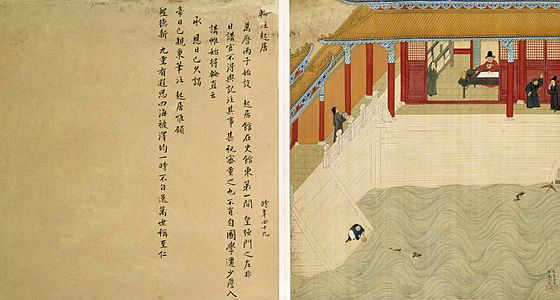 輪注起居
時年四十九
萬曆丙子始設 起居館在史館東第一間 皇極門之左非
日講官不得與記注其事甚祕密重之也不肖自國學遷少詹入
講帷始得輪直云
承 恩日已久謁
帝日已親秉筆注 起居惟願
聖德新 九重有遐思四海被澤均一時不自逸萬世稱至仁